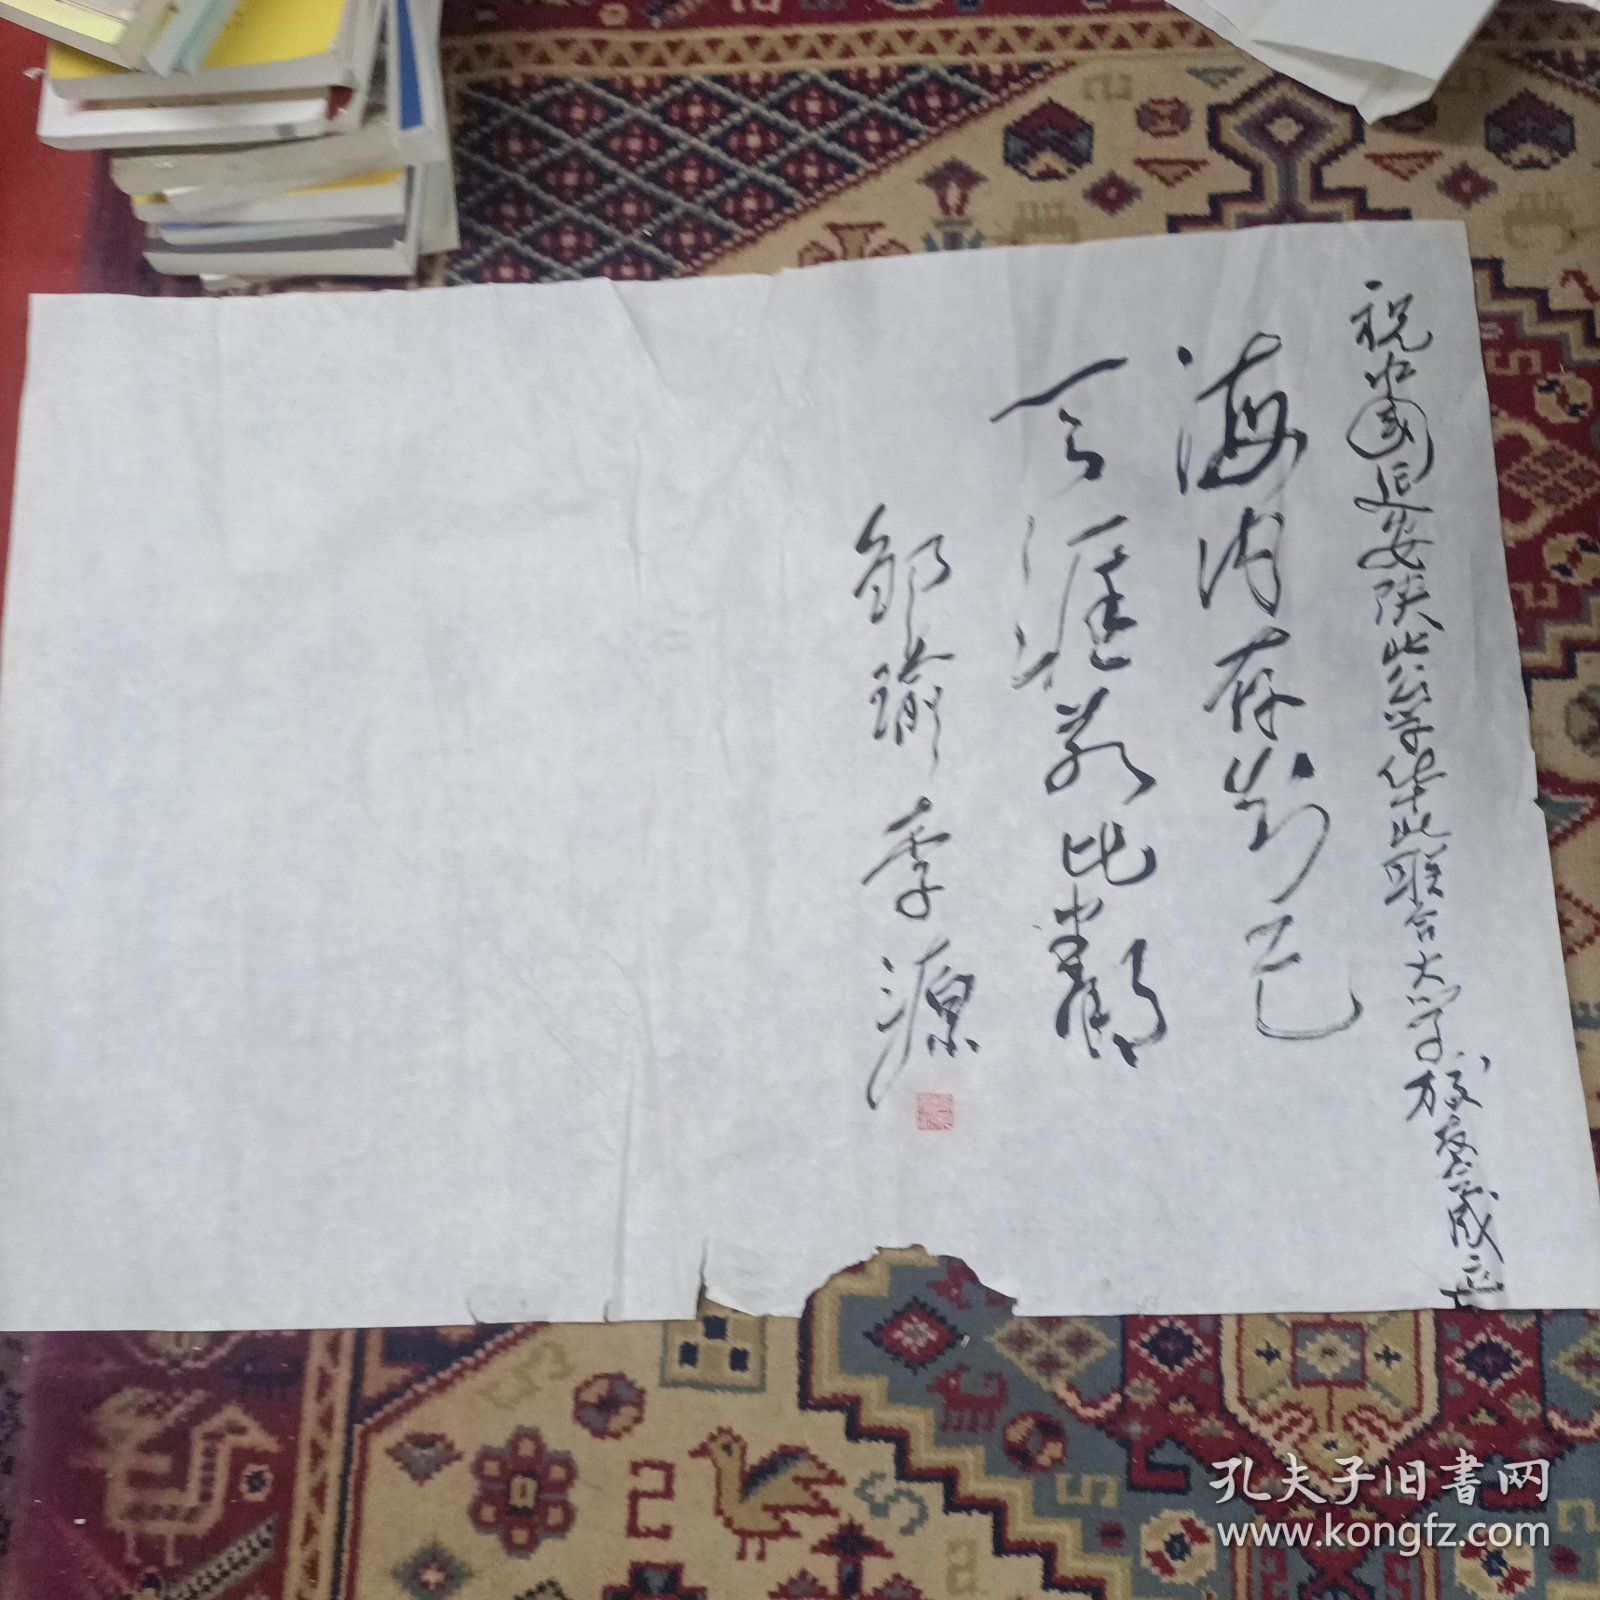 祝中国延安陕北公学华北联合大学校友会成立
海内存知己
天涯若比鄰
邹瑜 李源
孔夫子旧書网
www.kongfz.com